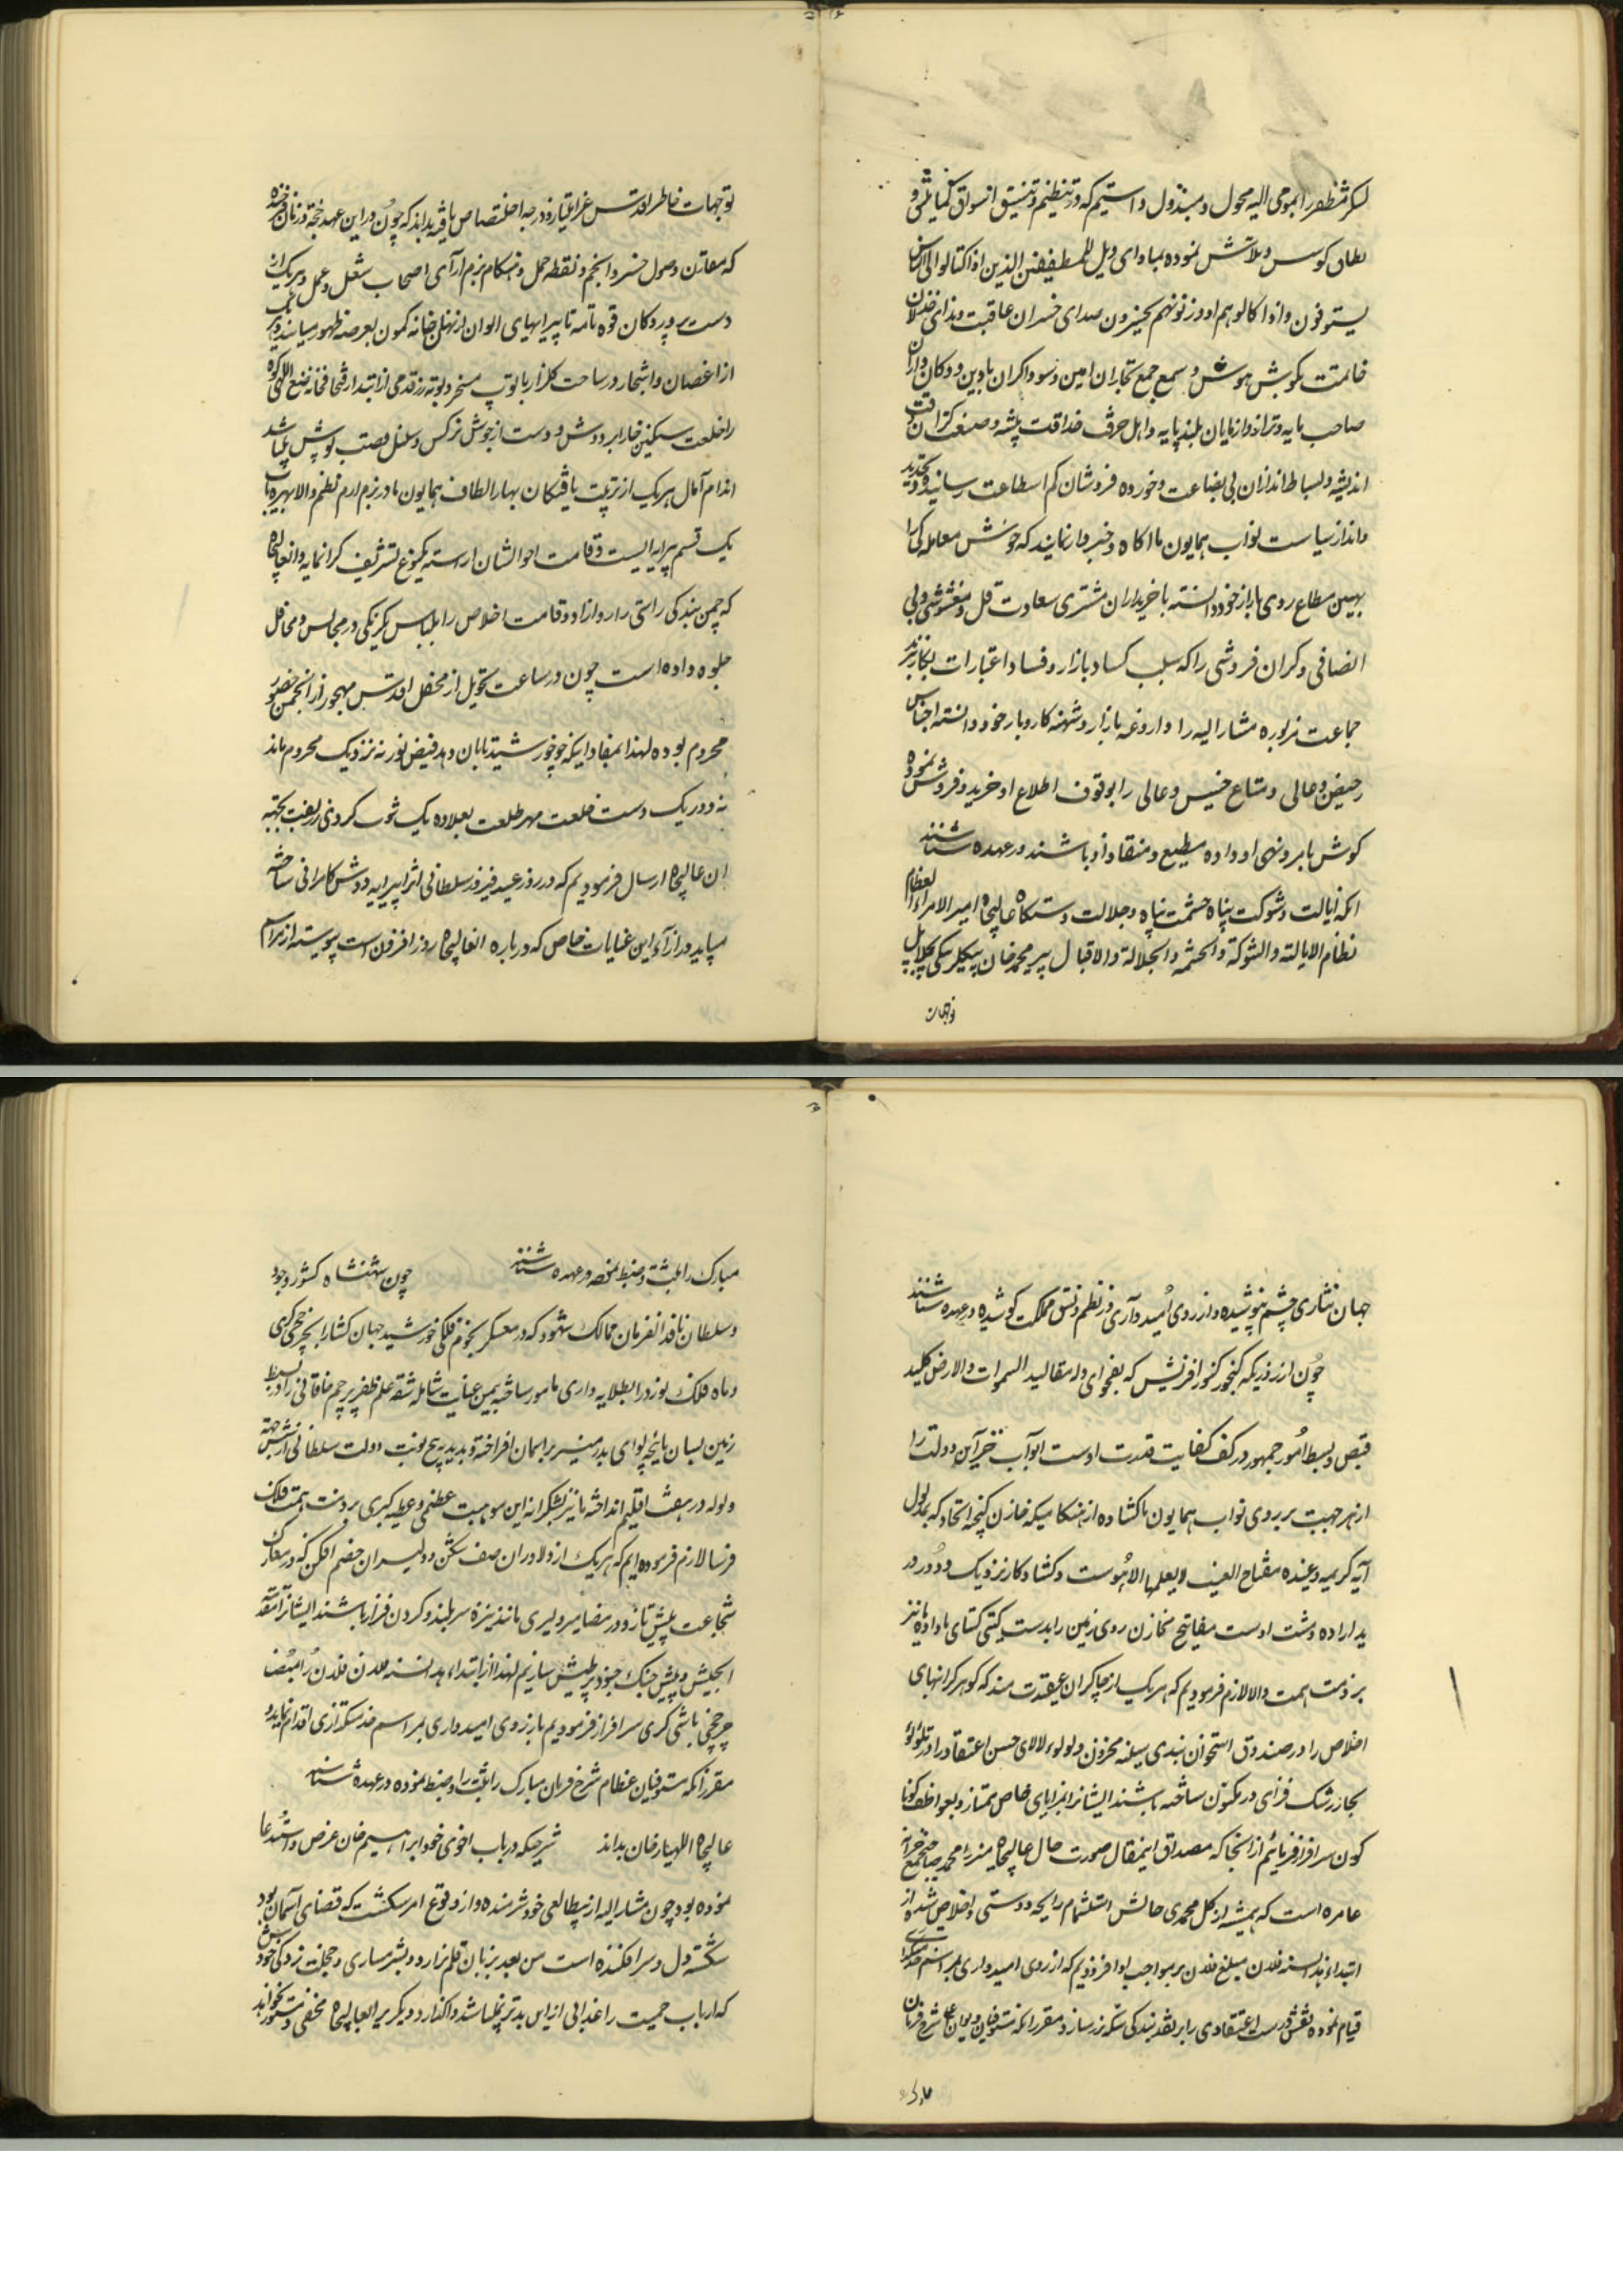 لشکر منظفر را بموجی الیه محول و مبذول داشتیم که در تنظیم و تنسیق اسواق کمایلیق و
بطان کوس و تلاش نموده بمبادای ویل للمطففین الذین اذا کتالوا الی الناس
یستوفون و اذا کالوهم او وزنوهم یخسرون صدای خسران عاقبت و ندای خذلان
خاتمت بگوش هوش و سمع جمع تجاران امین و سوداگران بادین و دکان داران
صاحب مایه و ترازو داران بلند پایه و اهل حرف حذاقت پیشه و صنعت گران دقت
اندیشه و بساط اندازان بی بضاعت و خورده فروشان کم استطاعت رسانیده و تجدید
و انذار سیاست نواب همایون ما اگاه و خبردار نمایند که خوش معاملگی را
بهین مطاع روی بازار خود دانسته با خریداران مشتری سعادت قل و مغشوشی و بی
انصافی و کران فروشی را که سبب کساد بازار و فساد اعتبارات بکار نبرند
جماعت مزبوره مشار الیه را داروغه بازار و شهنه کاروبار خود دانسته اجناس
رخیص و عالی و متاع خسیس و عالی را بوقوف اطلاع او خرید و فروش نموده
کوش بامر و نهی او داده مطیع و منقاد او باشند در عهده شناسند
انکه ایالت و شوکت پناه حشمت پناه و جلالت دستکاه عالیجاه امیر الامراء العظام
نظام الایالته و الشوکة و الحشمه و الجلالة و الاقبال پیر محمد خان بیکلربیکی
توجهات
توجهات خاطر اقدس عز امتیاز و درجه اختصاص یافته بداند که چون در این عهد خجسته و زمان فرخنده
که مقارن وصول خسرو انجم و نقطه حمل و هنکام بزم ارآی اصحاب شغل و عمل و هر یک از
دست پروردکان قوه نامیه با پیرایهای الوان از نهانخانه کمون بعرصه ظهور میایند و هر یک
از اغصان و اشجار در ساحت کلزار با توپ
را خلعت سبکین خارا بر دوش و دست از جوش نرکس و سنبل قصب پوش میباشد
اندام آمال هر یک از تربیت یافتکان بهار الطاف همایون ما در بزم ارم نظم والا بهره یاب
یک قسم پیرایه ایست و قامت احوالشان اراسته یکنوع تشریف کرانمایه و انعالیجاه
که چمن بندکی راستی را سر و ازاد و قامت اخلاص را بلباس یکرنکی در مجالس و محافل
جلوه داده است چون در ساعت تحویل از محفل اقدس مهجور و از انجمن حضور
محروم بوده لهذا بمفاد اینکه خو خورشید تابان دهد فیض نور نه نزدیک محروم ماند
نه دور یک دست خلعت مهر طلعت بعلاوه یک ثوب کردی زربفت بجهته
ان عالیجاه ارسال فرمودیم که در روز عید فیروز سلطانی انرا پیرایه دوش کامرانی ساخته
میباید در ازاء این عنایات خاص که درباره انعالیجاه روز افزون است پیوسته از مراسم
جهان نثاری چشم نپوشیده و از روی امید و آری در نظم و نسق مملکت کوشیده در عهده شناسند
چون از روزیکه کنجور کنوز افرنیش که بفحوای وله مقالید السموات والارض کلید
قبض و بسط امور جمهور در کف کفایت قدرت اوست ابواب خزآین دولت را
از هر جهت بر روی نواب همایون ما کشاده از هنکامیکه خازن کنجینه اتحاد که بمدلول
آیه کریمه و عنده مفتاح الغیب لا یعلمها الا هوست و کشاد کار نزدیک و دور در
ید اراده و مشت اوست مفاتیح مخازن روی زمین را بدست کیتی کشای ما داده ما نیز
بر ذمت همت والا لازم فرمودیم که هر یک از چاکران عقیدت مند که کوهر کرانبهای
اخلاص را در صندوق استخوان بندی سینه مخزون و لولوء لالای حسن اعتقاد را در تلولوء
بجا ز رشک فزای در مکنون ساخته باشند ایشانرا بمزایای خاص ممتاز و بعواطف کونا
کون سرافراز فرمائیم از انجا که مصداق اینمقال صورت حال عالیجاه میرزا محمد صاحبجمع خزانه
عامره است که همیشه از کل محمدی حالش استشمام رایحه دوستی و اخلاص شده از
ابتداء هذالسنه فلان مبلغ فلان بر مواجب او افزودیم که از روی امیدواری بمراسم خدمتگذاری
قیام نموده نقش درست اعتقادی را بر نقد بندکی سکه زر سازد مقرر انکه مستوفیان دیوان اعلی شرح فرمان
مبارک
مبارک را ثبت و ضبط نموده در عهده شناسند چون شهنشاه کشور وجود
و سلطان نافذ الفرمان ممالک شهود که در معسکر نجوم فلکی خورشید جهان کشا را بچرخچی کری
و ماه فلک نورد را بطلایه داری مامور ساخته بیمن عنایت شامله شقه علم ظفر پرچم خاقانی را در بسیط
زمین بسان ماهچه لوای بدر منیر بر اسمان افراخته و بدبدبه پنج نوبت دولت سلطانی از شش جهته
ولوله در هفت اقلیم انداخته ما نیز بشکرانه این موهبت عظمی و عطیه کبری بر ذمت همت فلک
فرسا لازم فرموده ایم که هر یک از دلاوران صف شکن و دلیران خصم افکن که در معارک
شجاعت پیش تاز و در مضامیر دلیری مانند نیزه سربلند و کردن فراز باشند ایشانرا مقدمة
الجیش و پیش جنک جنود پر طیش سازیم لهذا از ابتداء هذالسنه فلان فلان را بمنصب
چرخچی باشی کری سرافراز فرمودیم باز روی امیدواری بمراسم خدمتکذاری اقدام نماید
مقرر انکه مستوفیان عظام شرح فرمان مبارک را ثبت و ضبط نموده در عهده شناسند
عالیجاه اللهیار خان بداند شرحیکه در باب اخوی خود ابراهیم خان عرض و استدعا
نموده بود چون مشار الیه از بیطالعی خود شرمنده و از وقوع امر شکست که قضای آسمان بود
شکسته دل و سرافکنده است من بعد بر زبان قلم نیارد و بشرمساری و خجلت زدکی خود
که ارباب حمیت را عذابی از این بدتر نمیباشد واکذارد دیکر بر انعالیجاه مخفی و مستور نخواهد